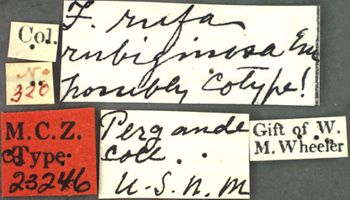 Col.
No
320
F. rufa
rubiginosa Em
possibly Cotype!
M.C.Z.
CoType.
23246
Pergande
Coll.
U.S.N.M
Gift of W.
M. Wheeler